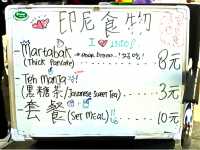 印尼食物
I ♡ INDO!
- Martabak
(Thick Pancake)
8元
- Teh Manja
(黑糖茶 / Javanese Sweet Tea)
3元
- 套餐 (Set Meal)
10元